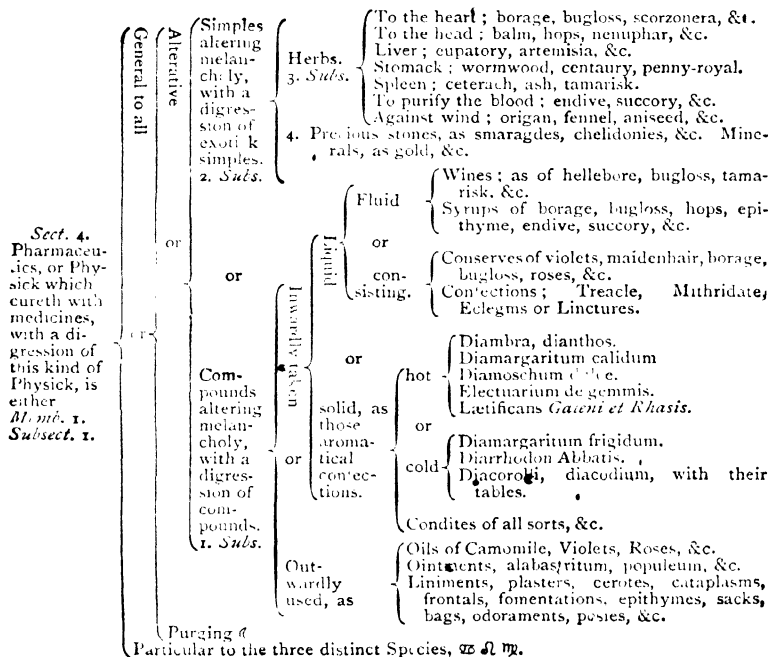 Sect. 4.
Pharmaceu-
tics, or Phy-
sick which
cureth with
medicines,
with a di-
gression of
this kind of
Physick, is
either
Memb. 1.
Subsect. 1.
General to all
or
Alterative
or
Simples
altering
melan-
choly,
with a
digres-
sion of
exotick
simples.
2. Subs.
Herbs.
3. Subs.
To the heart; borage, bugloss, scorzonera, &c.
To the head; balm, hops, nenuphar, &c.
Liver; eupatory, artemisia, &c.
Stomack; wormwood, centaury, penny-royal.
Spleen; ceterach, ash, tamarisk.
To purify the blood; endive, succory, &c.
Against wind; origan, fennel, aniseed, &c.
4. Precious stones, as smaragdes, chelidonies, &c. Mine-
rals, as gold, &c.
or
Compounds
altering
melan-
choly,
with a
digres-
sion of
com-
pounds.
1. Subs.
Inwardly taken
Liquid
Fluid
Wines; as of hellebore, bugloss, tama-
risk, &c.
Syrups of borage, bugloss, hops, epi-
thyme, endive, succory, &c.
or
con-
sisting.
Conserves of violets, maidenhair, borage,
bugloss, roses, &c.
Confections; Treacle, Mithridate,
Eclegms or Linctures.
or
solid, as
those
aroma-
tical
confec-
tions.
hot
Diambra, dianthos.
Diamargaritum calidum
Diamoschum dulce.
Electuarium de gemmis.
Lætificans Galeni et Rhasis.
or
cold
Diamargaritum frigidum.
Diarrhodon Abbatis.
Diacorolli, diacodium, with their
tables.
Condites of all sorts, &c.
or
Out-
wardly
used, as
Oils of Camomile, Violets, Roses, &c.
Ointments, alabastritum, populeum, &c.
Liniments, plasters, cerotes, cataplasms,
frontals, fomentations, epithymes, sacks,
bags, odoraments, posies, &c.
Purging
Particular to the three distinct Species, ♋ ♌ ♍.